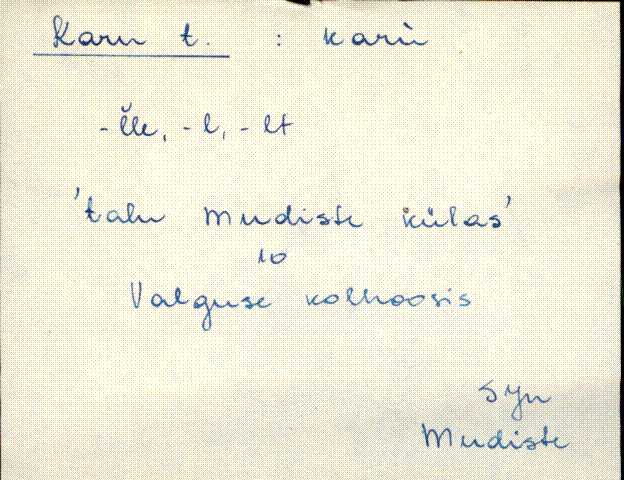 Karu t. : karù
-l̆le, -l, -lt
'talu Mudiste külas'
10
Valguse kolhoosis
SJn
Mudiste